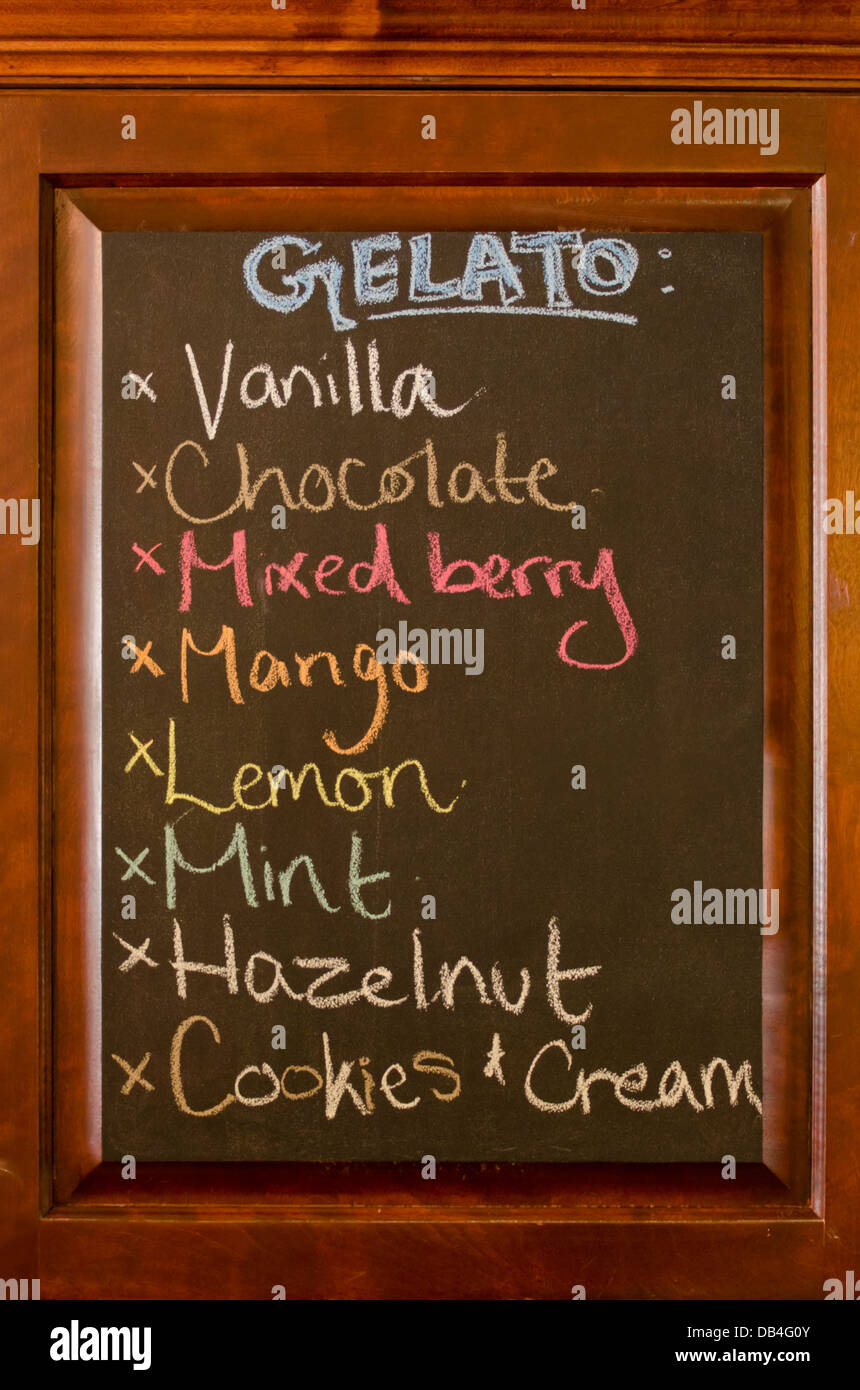 GELATO:
x Vanilla
x Chocolate
x Mixed berry
x Mango
x Lemon
x Mint
x Hazelnut
x Cookies & Cream
alamy
alamy
Image ID: DB4G0Y
www.alamy.com